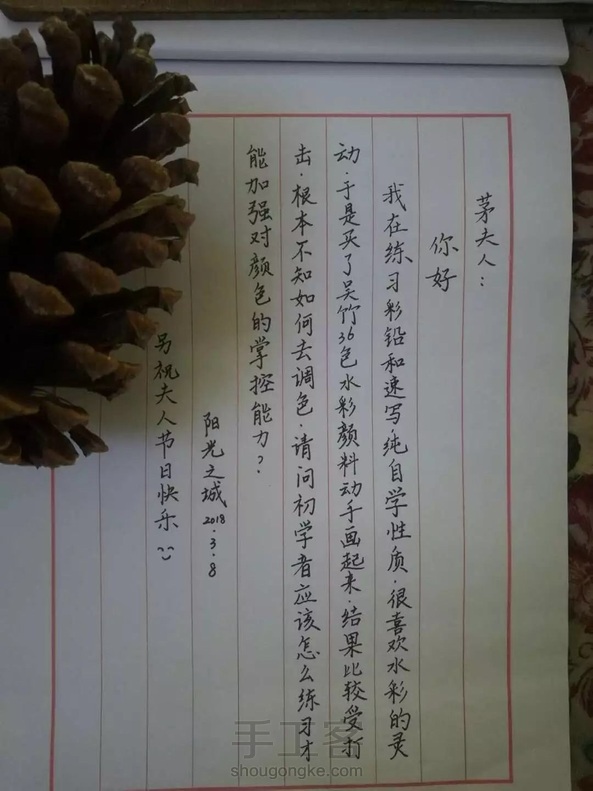 茅夫人：
你好
我在练习彩铅和速写.纯自学性质.很喜欢水彩的灵
动.于是买了吴竹36色水彩颜料动手画起来.结果比较受打
击.根本不知如何去调色.请问初学者应该怎么练习才
能加强对颜色的掌控能力？
阳光之城 2018.3.8
另祝夫人节日快乐
手工客
shougongke.com